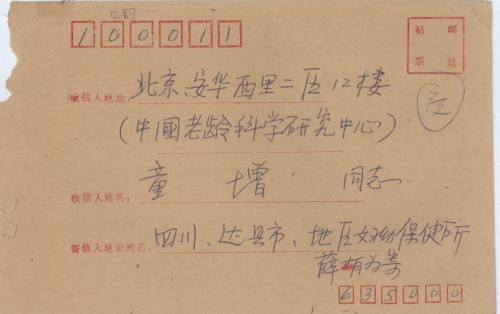 100011
贴邮
票处
收信人地址:北京、安华西里二区12楼
(中国老龄科学研究中心)
收信人姓名:童增 同志
寄信人地址姓名:四川、达县市、地区妇幼保健所
薛有为寄
635000